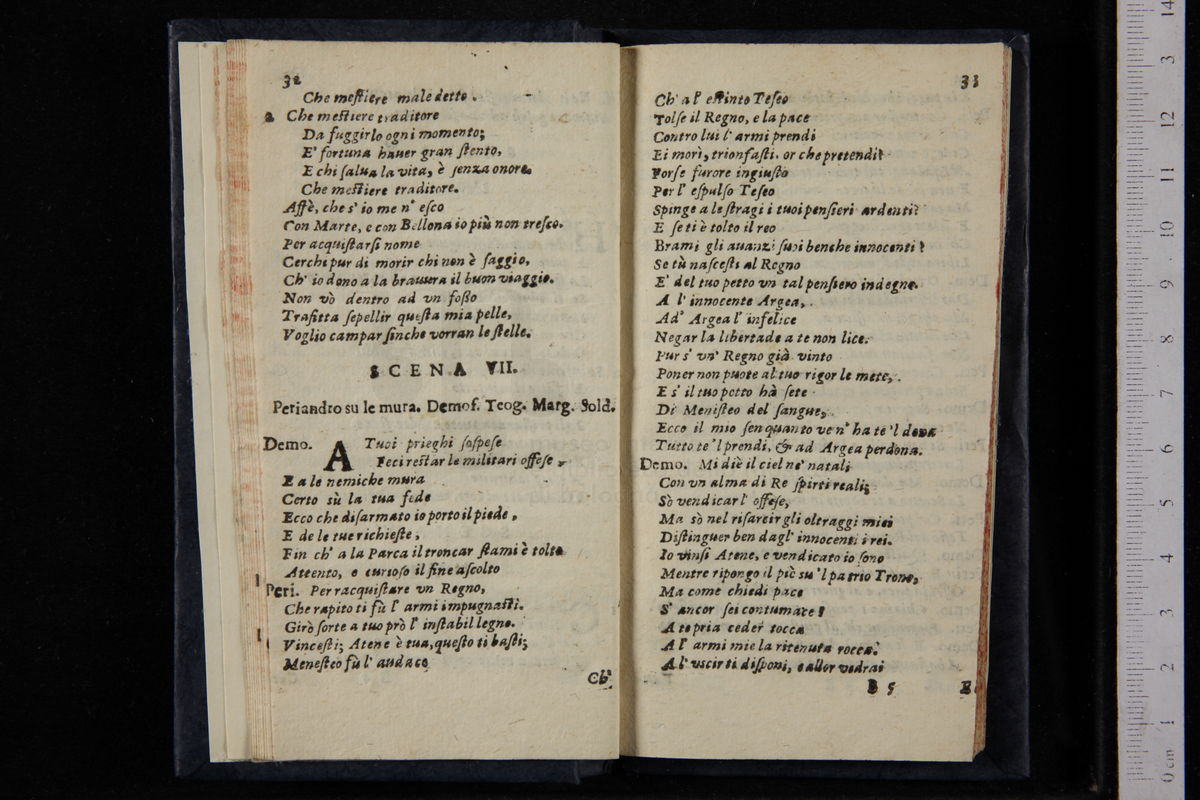 32
Che meſtiere maledetto.
2 Che meſtiere traditore
Da fuggirlo ogni momento;
E' fortuna hauer gran ſtento,
E chi ſalua la vita, è ſenza onore.
Che meſtiere traditore.
Affè, che s' io me n' eſco
Con Marte, e con Bellona io più non treſco.
Per acquiſtarſi nome
Cerchi pur di morir chi non è ſaggio,
Ch' io dono a la brauura il buon viaggio.
Non vò dentro ad vn foſſo
Trafitta ſepellir queſta mia pelle,
Voglio campar ſinche vorran le ſtelle.
SCENA VII.
Periandro su le mura. Demof. Teog. Marg. Sold.
Demo. A Tuoi prieghi ſoſpeſe
Feci reſtar le militari offeſe,
E a le nemiche mura
Certo sù la tua fede
Ecco che diſarmato io porto il piede,
E de le tue richieſte,
Fin ch' a la Parca il troncar ſtami è tolto
Attento, e curioſo il fine aſcolto
Peri. Per racquiſtare vn Regno,
Che rapito ti fù l' armi impugnaſti.
Girò ſorte a tuo prò l' inſtabil legno.
Vinceſti; Atene è tua, queſto ti baſti;
Meneſteo fù l' audace
Ch'
33
Ch' a l' eſtinto Teſeo
Tolſe il Regno, e la pace
Contro lui l' armi prendi
Ei morì, trionfaſti, or che pretendi?
Forſe furore ingiuſto
Per l' eſpulſo Teſeo
Spinge a le ſtragi i tuoi penſieri ardenti?
E ſe ti è tolto il reo
Brami gli auanzi ſuoi benche innocenti?
Se tù naſceſti al Regno
E' del tuo petto vn tal penſiero indegno.
A l' innocente Argea,
Ad' Argea l' infelice
Negar la libertade a te non lice.
Pur s' vn' Regno già vinto
Poner non puote al tuo rigor le mete,
E s' il tuo petto hà ſete
Di Meniſteo del ſangue,
Ecco il mio ſen quanto ve n' ha te 'l dona
Tutto te 'l prendi, & ad Argea perdona.
Demo. Mi diè il ciel ne' natali
Con vn alma di Re ſpirti reali;
Sò vendicar l' offeſe,
Ma sò nel riſarcir gli oltraggi miei
Diſtinguer ben dagl' innocenti i rei.
Io vinſi Atene, e vendicato io ſono
Mentre ripongo il piè su 'l patrio Trono,
Ma come chiedi pace
S' ancor ſei contumace?
A te pria ceder tocca
A l' armi mie la ritenuta rocca.
A l' vscir ti diſponi, e allor vedrai
B 5
E